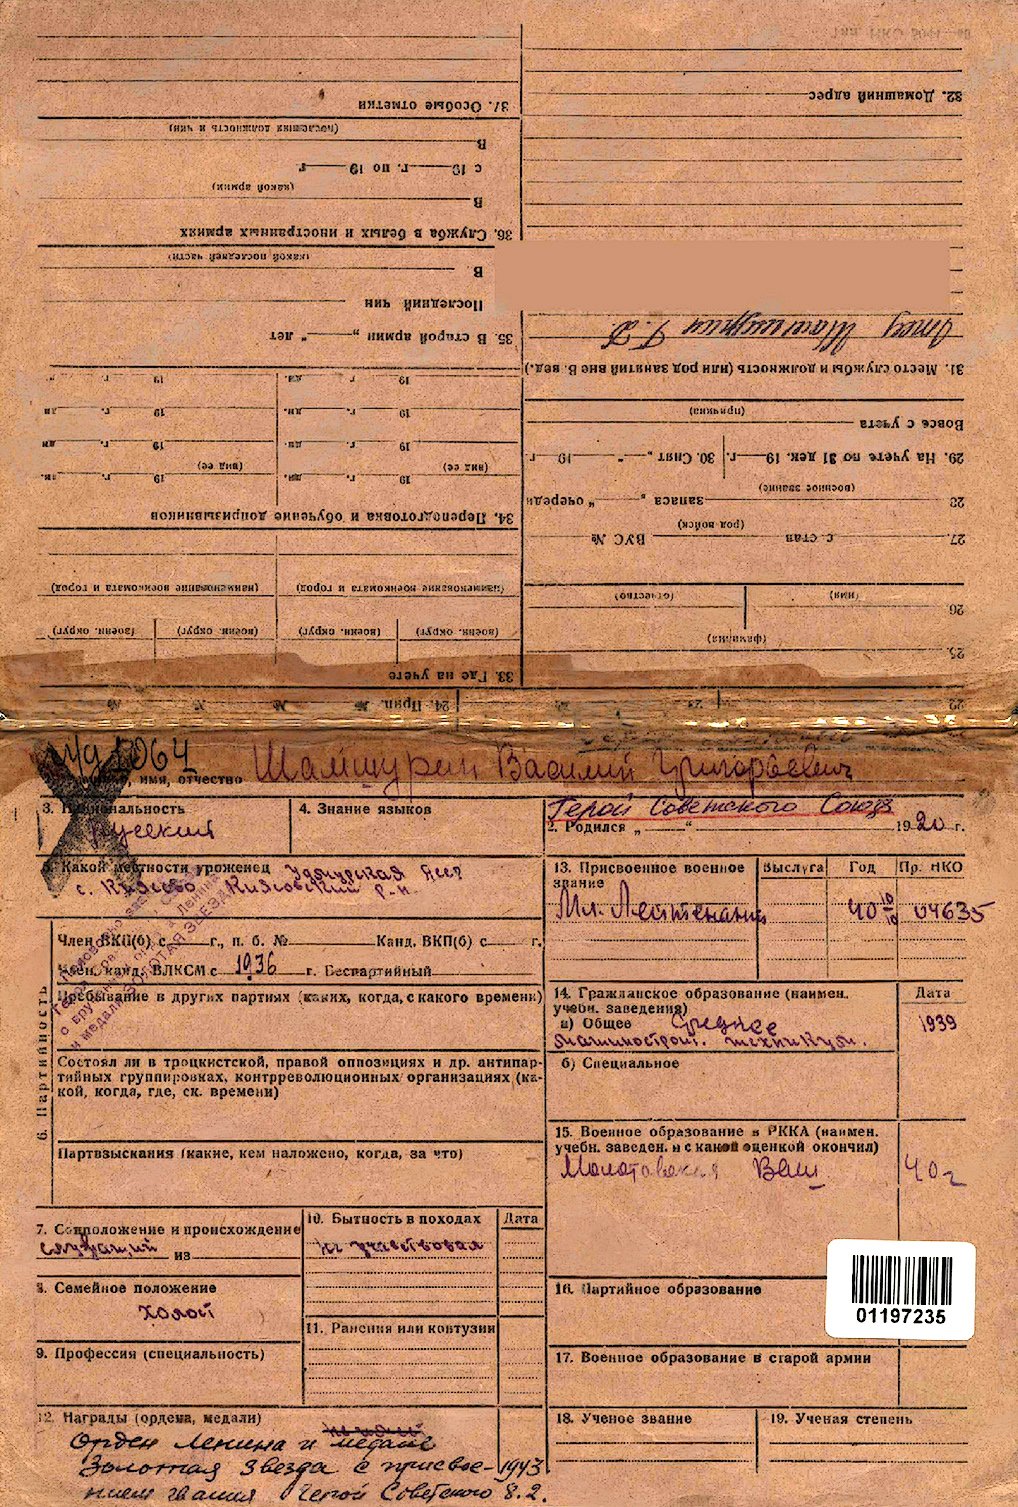 Тип. НКО
32. Домашний адрес
Отец Шамшурин Г. Д.
31. Место службы и должность (или род занятий вне В. вед.)
(причина)
Вовсе с учета
29. На учете по 31 дек. 19 г. 30. Снят „ “ 19 г.
(военное звание)
28. запаса „ “ очереди
(род войск)
27. с стаn ВУС №
26.
(имя) (отчество)
(фамилия)
25.
37. Особые отметки
(последняя должность и чин)
В
с 19 г. по 19 г.
(какой армии)
В
36. Служба в белых и иностранных армиях
(какой последней части)
В
Последний чин
35. В старой армии „ “ лет
19 г. дн. 19 г.
19 г. дн. 19 г. дн
19 г. дн. 19 г. дн
(вид ее) (вид ее)
19 г. дн. 19 г. дн.
34. Переподготовка и обучение допризывников
(наименование военкомата и город) (наименование военкомата и город)
(военн. округ) (военн. округ) (военн. округ) (военн. округ)
33. Где на учете
24. Прип. № № № №
23
22
У/д 1064
имя, отчество Шамшурин Василий Григорьевич
Герой Советского Союза
2. Родился „ “ 1920 г.
3. Национальность
русский
4. Знание языков
5. Какой местности уроженец Удмурская АССР
с. Киясово Киясовский р-н.
Герой
с вручением ордена Ленина
и медали ЗОЛОТАЯ ЗВЕЗДА
6. Партийность
Член ВКП(б) с г., п. б. № Канд. ВКП(б) с г.
Член, канд. ВЛКСМ с 1936 г. Беспартийный
Пребывание в других партиях (каких, когда, с какого времени)
Состоял ли в троцкистской, правой оппозициях и др. антипар-
тийных группировках, контрреволюционных организациях (ка-
кой, когда, где, ск. времени)
Партвзыскания (какие, кем наложено, когда, за что)
7. Соцположение и происхождение
служащий из
8. Семейное положение
холост
9. Профессия (специальность)
10. Бытность в походах Дата
не участвовал
11. Ранения или контузии
12. Награды (ордена, медали)
Орден Ленина и медаль
Золотая Звезда с присвое- 1943
нием звания Герой Советского 8.2.
13. Присвоенное военное звание Выслуга Год Пр. НКО
Мл. Лейтенант 40 10/10 04635
14. Гражданское образование (наимен. Дата
учебн. заведения)
а) Общее Среднее 1939
машиностроит. техникум.
б) Специальное
15. Военное образование в РККА (наимен.
учебн. заведен. и с какой оценкой окончил)
Молотовская ВАШ 40 г
16. Партийное образование
01197235
17. Военное образование в старой армии
18. Ученое звание
19. Ученая степень